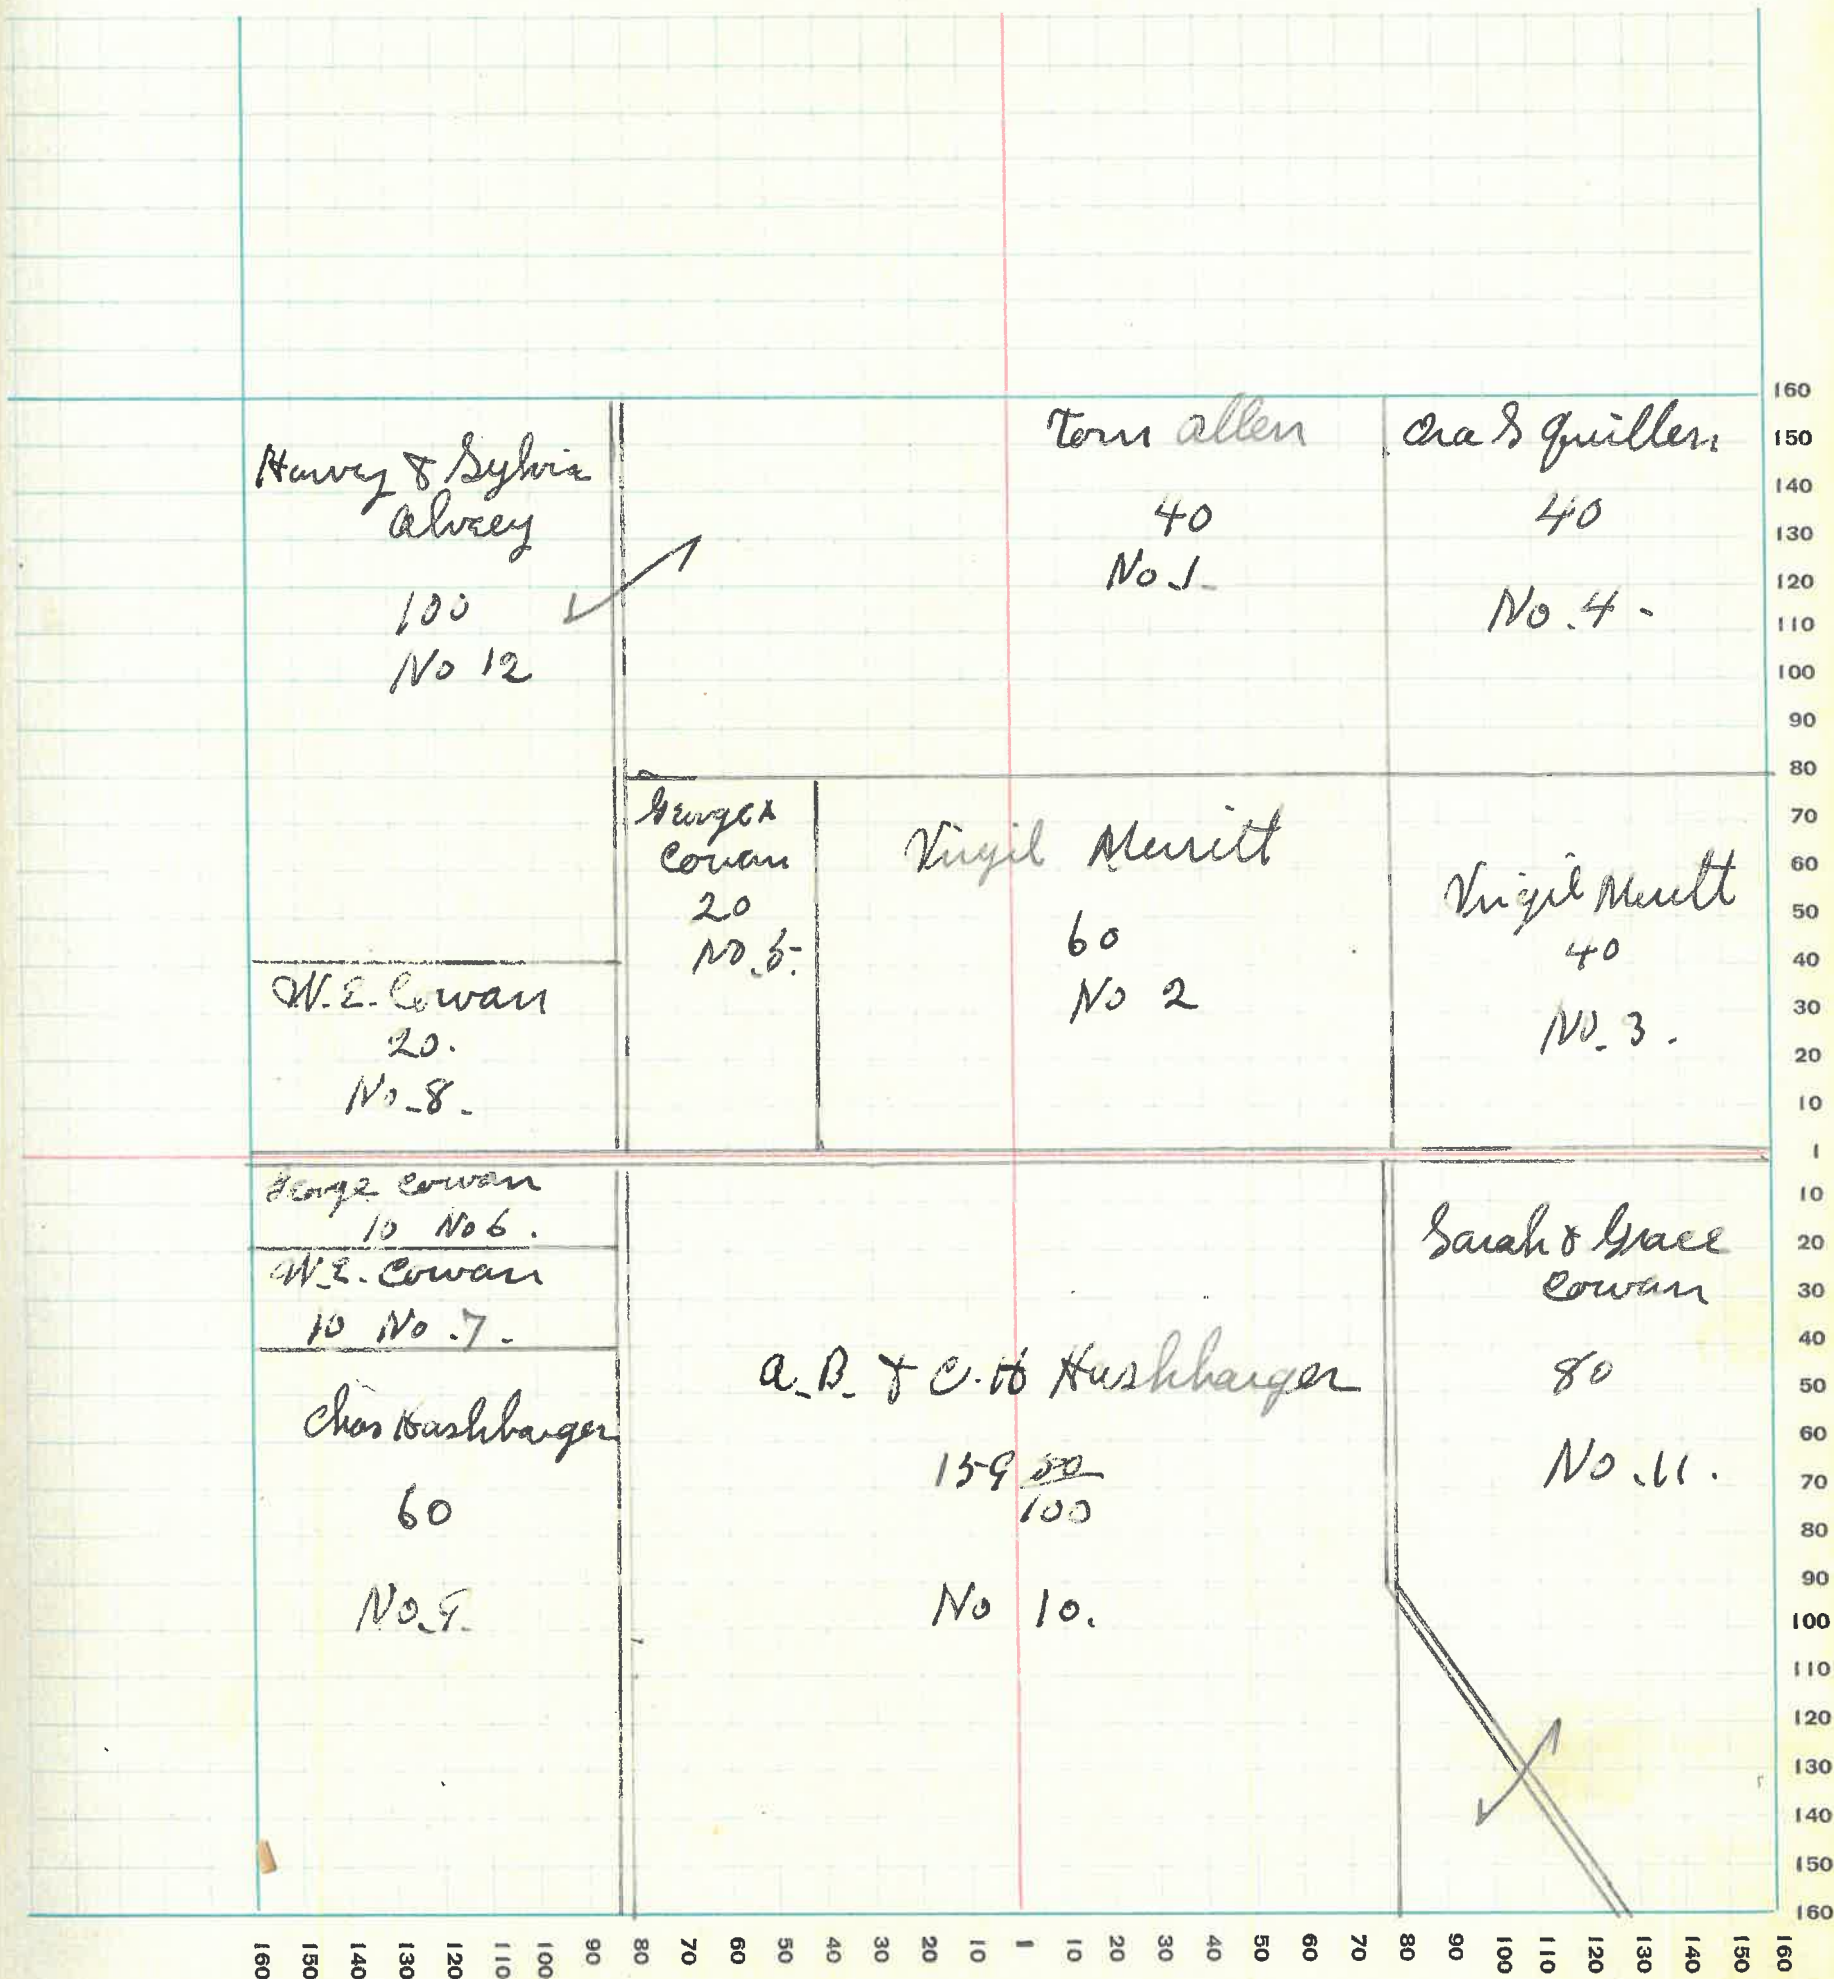 Harvey & Sylvia
Alvey
100
No 12
Tom Allen
40
No 1-
Ora S Quillen
40
No. 4-
George A
Cowan
20
No. 5-
Virgil Merritt
60
No 2
Virgil Merritt
40
No. 3.
W. E. Cowan
20.
No. 8.
George Cowan
10 No 6.
W. E. Cowan
10 No. 7.
Chas Hashbarger
60
No. 9.
A. B. & C. H Hashbarger
159 50/100
No 10.
Sarah & Grace
Cowan
80
No. 11.
160
150
140
130
120
110
100
90
80
70
60
50
40
30
20
10
1
10
20
30
40
50
60
70
80
90
100
110
120
130
140
150
160
160 150 140 130 120 110 100 90 80 70 60 50 40 30 20 10 1 10 20 30 40 50 60 70 80 90 100 110 120 130 140 150 160